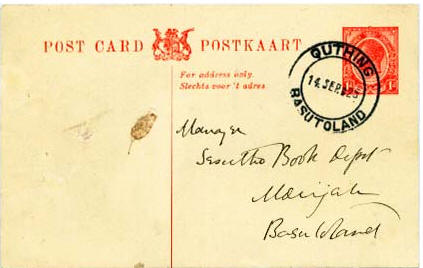 POST CARD POSTKAART
For address only.
Slechts voor 't adres
QUTHING
14 SEP
BASUTOLAND
Manager
Sesutho Book Depot
Morijah
Basutoland